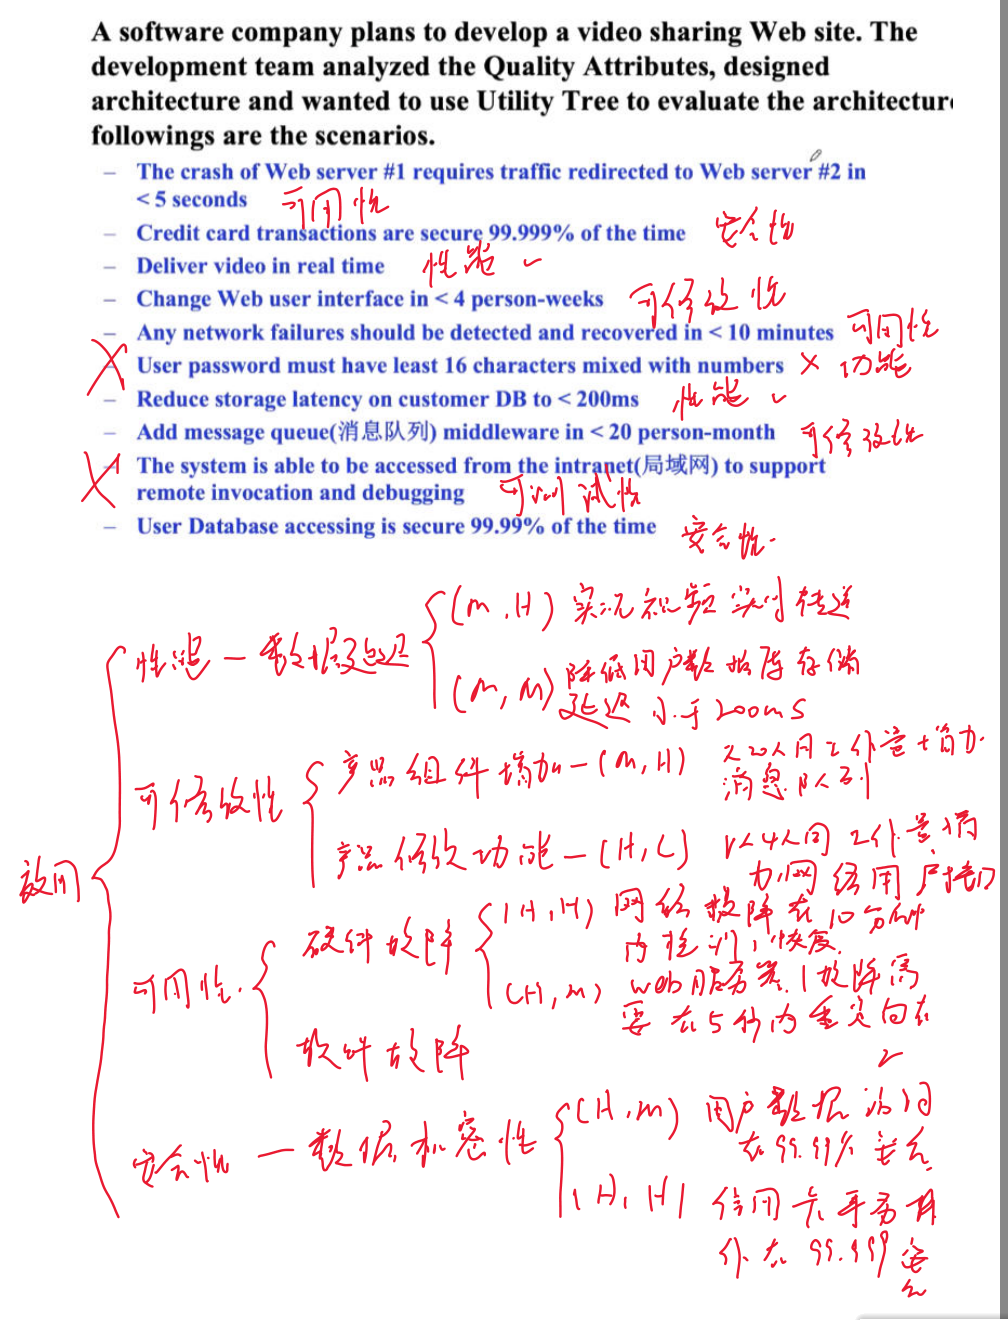 A software company plans to develop a video sharing Web site. The
development team analyzed the Quality Attributes, designed
architecture and wanted to use Utility Tree to evaluate the architectur
followings are the scenarios.
– The crash of Web server #1 requires traffic redirected to Web server #2 in
< 5 seconds 可用性
– Credit card transactions are secure 99.999% of the time 安全性
– Deliver video in real time 性能 ✓
– Change Web user interface in < 4 person-weeks 可修改性
– Any network failures should be detected and recovered in < 10 minutes 可用性
User password must have least 16 characters mixed with numbers × 功能
– Reduce storage latency on customer DB to < 200ms 性能 ✓
– Add message queue(消息队列) middleware in < 20 person-month 可修改性
The system is able to be accessed from the intranet(局域网) to support
remote invocation and debugging 可测试性
– User Database accessing is secure 99.99% of the time 安全性.
效用
性能 — 数据延迟
(m, H) 实况视频实时传送
(m, m) 降低用户数据库存储
延迟小于200ms
可修改性
产品组件增加 — (m, H) 以20人月工作量增加
消息队列
产品修改功能 — (H, L) 以4人周工作量
网络用户接口
可用性.
硬件故障
(H, H) 网络故障在10分钟
内检测,恢复.
(H, m) web服务器1故障需
要在5秒内重定向在
2
软件故障
安全性 — 数据机密性
(H, m) 用户数据访问
在99.99%安全.
(H, H) 信用卡
在99.999安
全